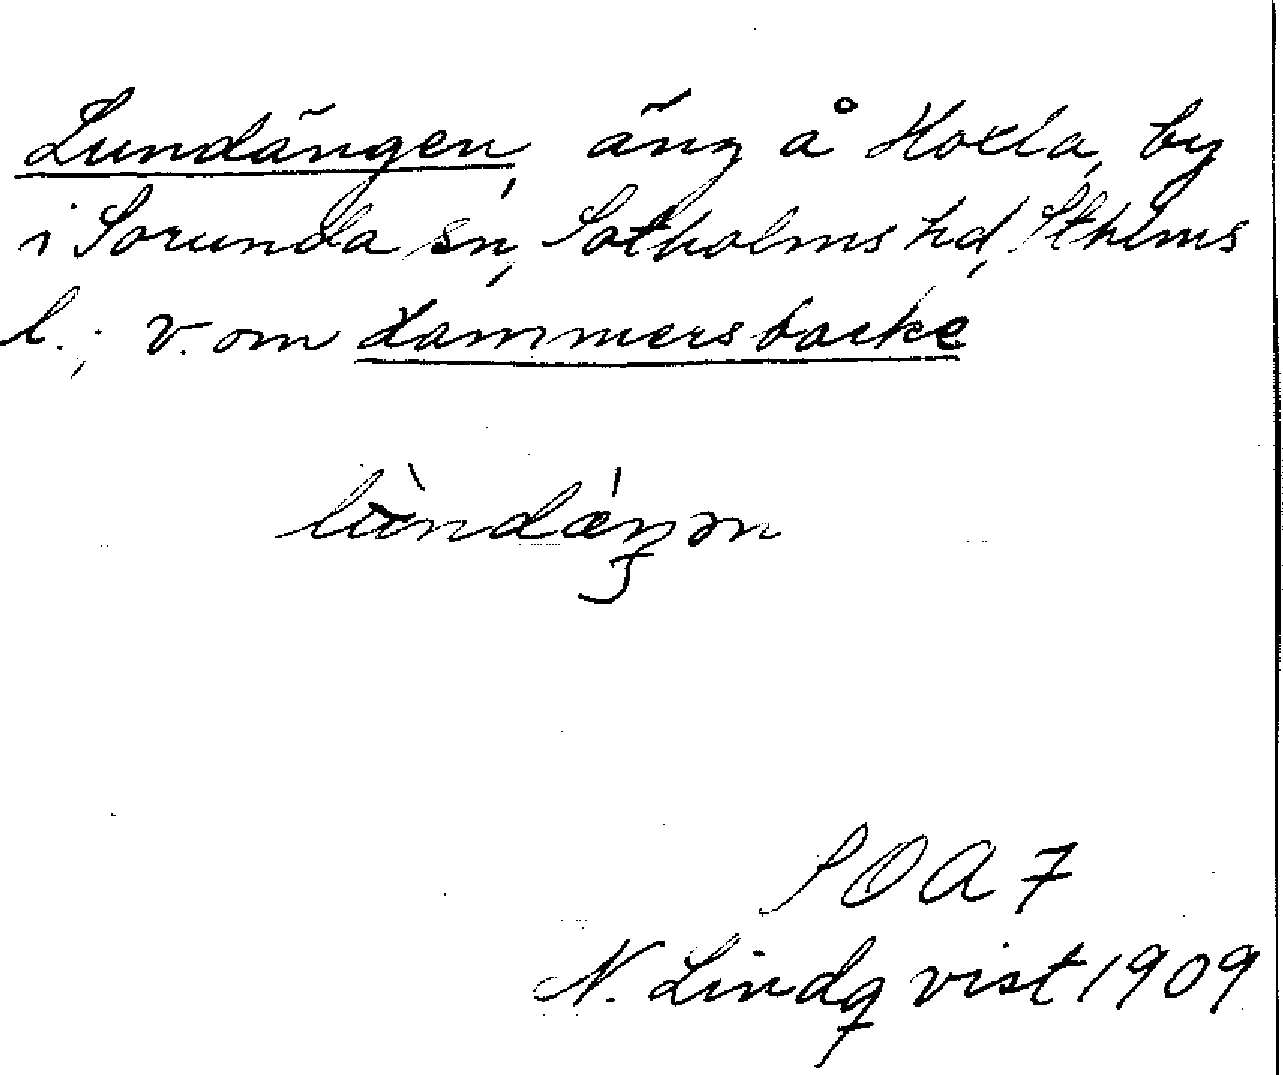 Lundängen, äng å Hoxla, by
i Sorunda sn, Sotholms hd, Sthlms
l.; v. om Hammersbacke
lùndǽŋən
SOA 7
N. Lindqvist 1909